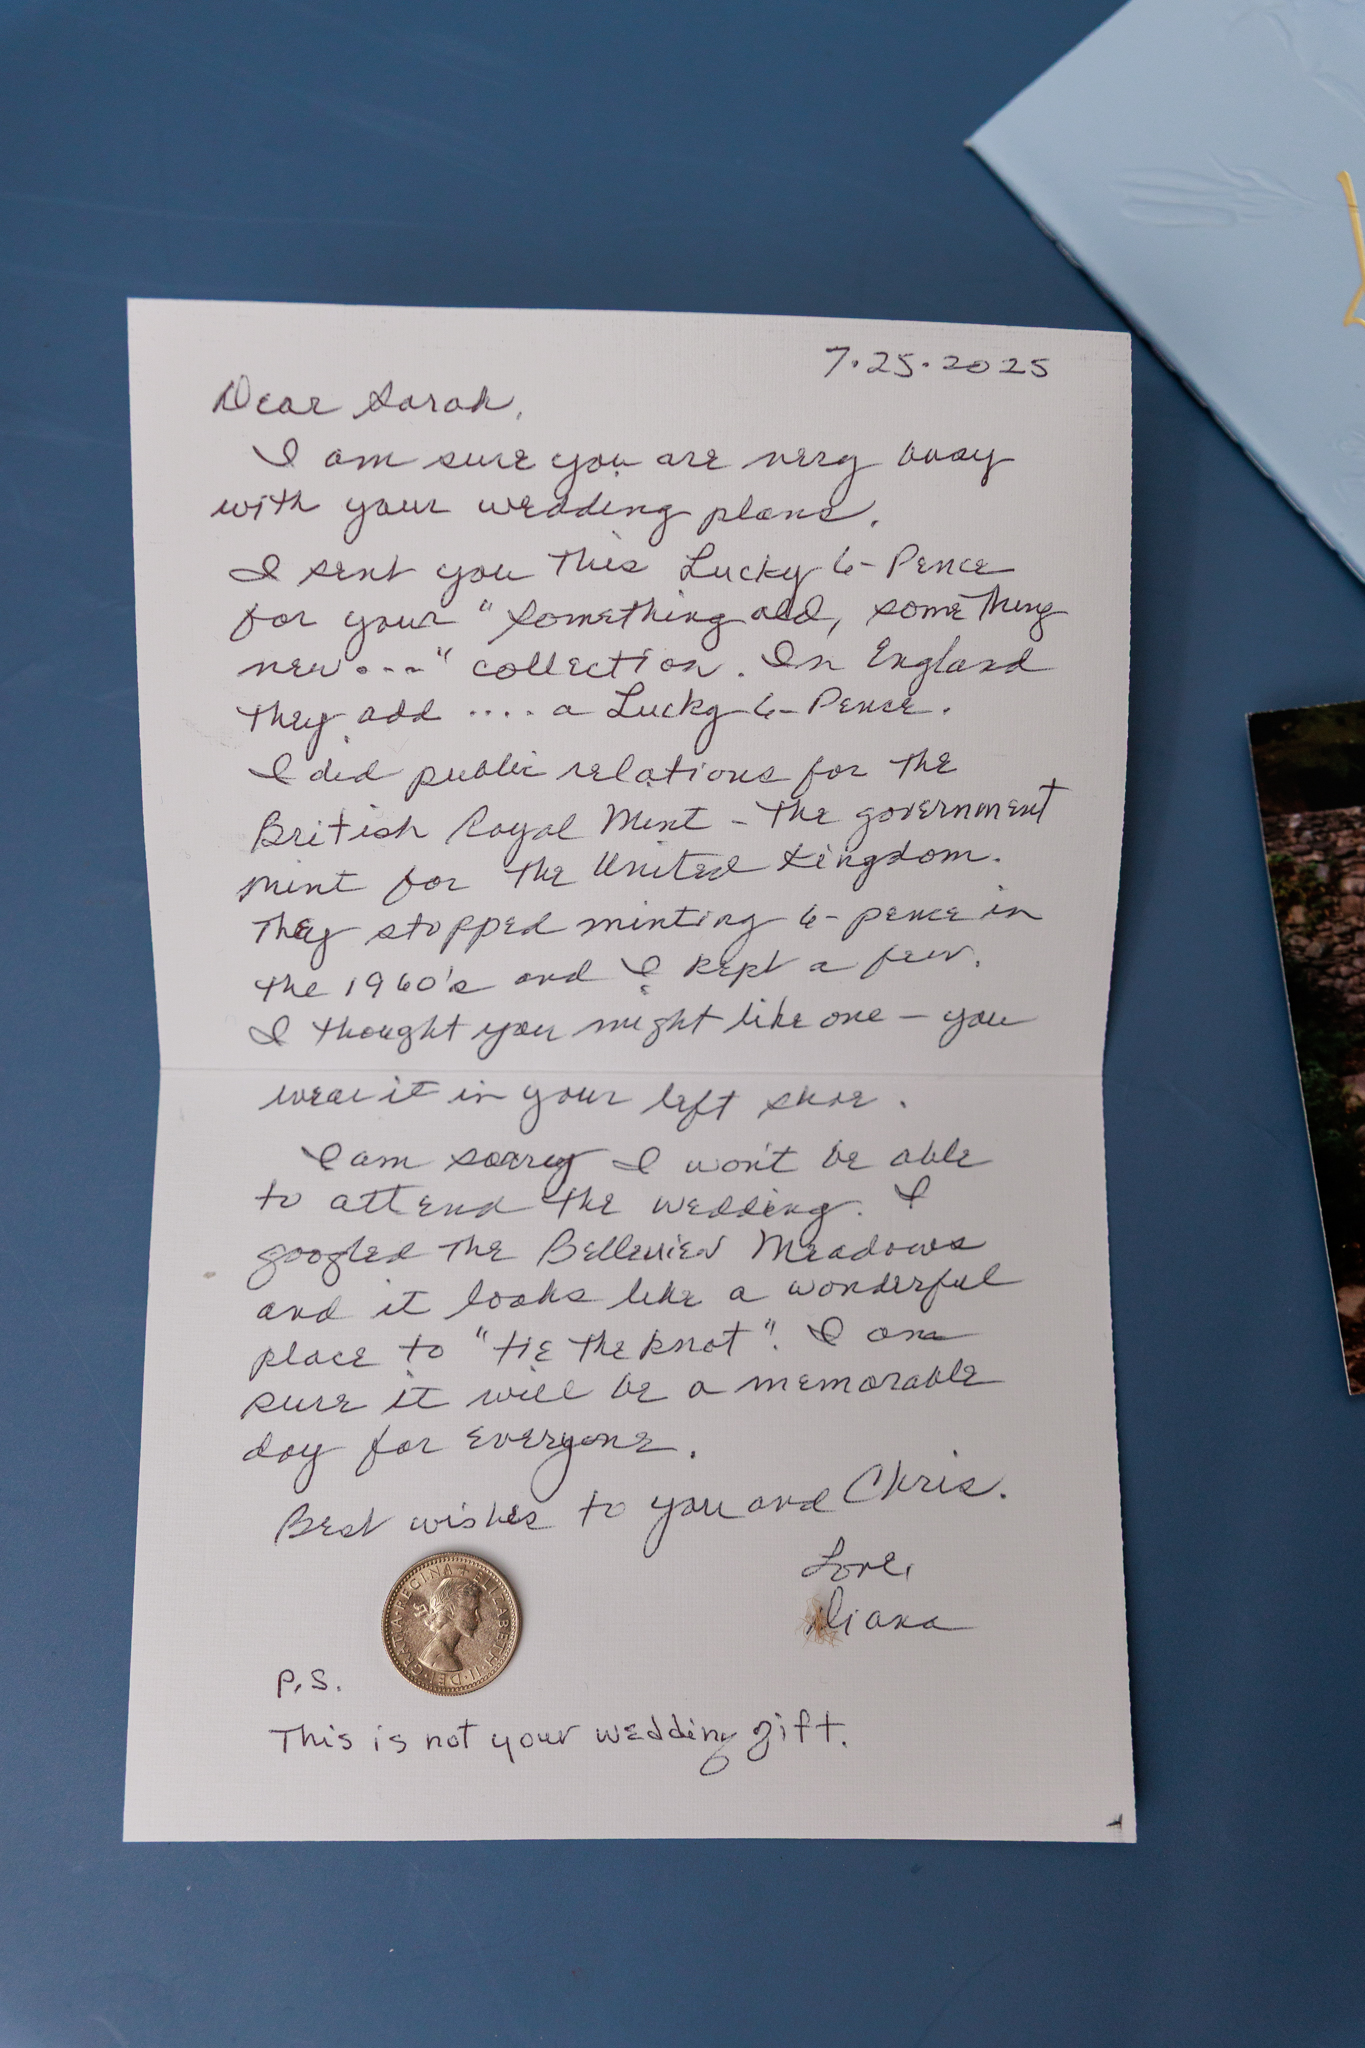 7.25.2025
Dear Sarah,
I am sure you are very busy
with your wedding plans.
I sent you this Lucky 6-Pence
for your "something old, something
new..." collection. In England
they add .... a Lucky 6-Pence.
I did public relations for the
British Royal Mint - the government
mint for the United Kingdom.
They stopped minting 6-pence in
the 1960's and I kept a few.
I thought you might like one - you
wear it in your left shoe.
I am sorry I won't be able
to attend the wedding. I
googled the Belleview Meadows
and it looks like a wonderful
place to "tie the knot". I am
sure it will be a memorable
day for everyone.
Best wishes to you and Chris.
Love,
Diana
ELIZABETH·II·DEI·GRATIA·REGINA+
P.S.
This is not your wedding gift.